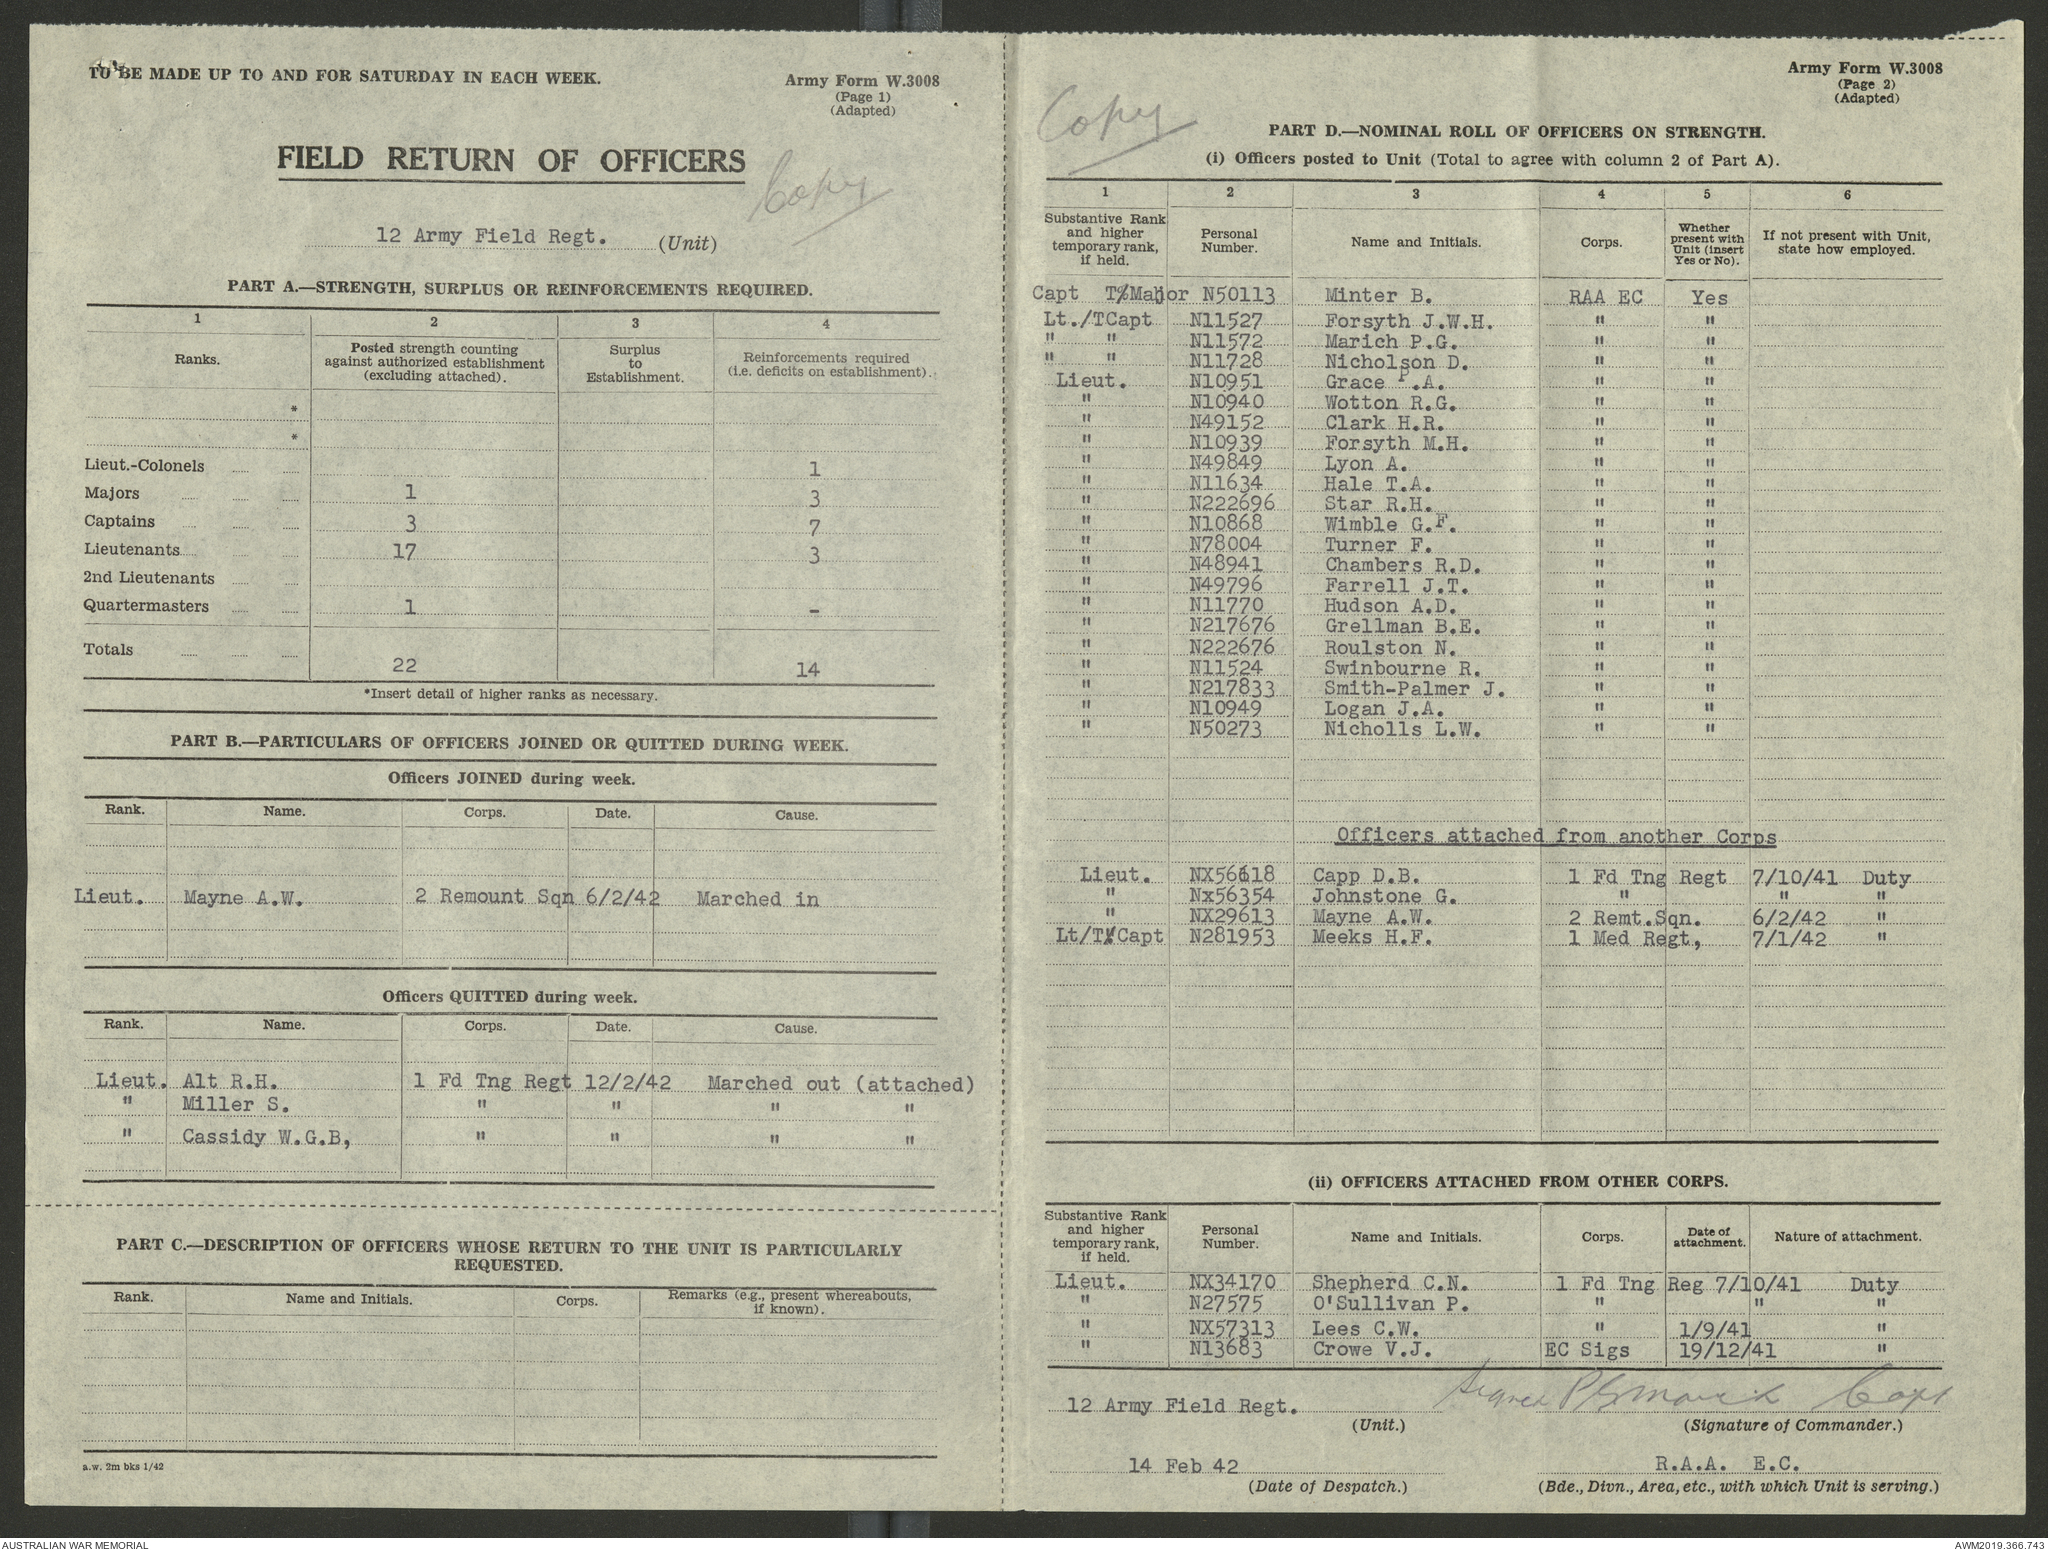 TO BE MADE UP TO AND FOR SATURDAY IN EACH WEEK.
Army Form W.3008
(Page 1)
(Adapted)
FIELD RETURN OF OFFICERS
Copy
12 Army Field Regt. (Unit)
PART A.—STRENGTH, SURPLUS OR REINFORCEMENTS REQUIRED.
1 2 3 4
Ranks. Posted strength counting against authorized establishment (excluding attached). Surplus to Establishment. Reinforcements required (i.e. deficits on establishment).
*
*
Lieut.-Colonels 1
Majors 1 3
Captains 3 7
Lieutenants 17 3
2nd Lieutenants
Quartermasters 1 -
Totals 22 14
*Insert detail of higher ranks as necessary.
PART B.—PARTICULARS OF OFFICERS JOINED OR QUITTED DURING WEEK.
Officers JOINED during week.
Rank. Name. Corps. Date. Cause.
Lieut. Mayne A.W. 2 Remount Sqn 6/2/42 Marched in
Officers QUITTED during week.
Rank. Name. Corps. Date. Cause.
Lieut. Alt R.H. 1 Fd Tng Regt 12/2/42 Marched out (attached)
" Miller S. " " " "
" Cassidy W.G.B, " " " "
PART C.—DESCRIPTION OF OFFICERS WHOSE RETURN TO THE UNIT IS PARTICULARLY
REQUESTED.
Rank. Name and Initials. Corps. Remarks (e.g., present whereabouts, if known).
a.w. 2m bks 1/42
Army Form W.3008
(Page 2)
(Adapted)
Copy
PART D.—NOMINAL ROLL OF OFFICERS ON STRENGTH.
(i) Officers posted to Unit (Total to agree with column 2 of Part A).
1 2 3 4 5 6
Substantive Rank and higher temporary rank, if held. Personal Number. Name and Initials. Corps. Whether present with Unit (insert Yes or No). If not present with Unit, state how employed.
Capt T/Major N50113 Minter B. RAA EC Yes
Lt./TCapt N11527 Forsyth J.W.H. " "
" " N11572 Marich P.G. " "
" " N11728 Nicholson D. " "
Lieut. N10951 Grace P.A. " "
" N10940 Wotton R.G. " "
" N49152 Clark H.R. " "
" N10939 Forsyth M.H. " "
" N49849 Lyon A. " "
" N11634 Hale T.A. " "
" N222696 Star R.H. " "
" N10868 Wimble G.F. " "
" N78004 Turner F. " "
" N48941 Chambers R.D. " "
" N49796 Farrell J.T. " "
" N11770 Hudson A.D. " "
" N217676 Grellman B.E. " "
" N222676 Roulston N. " "
" N11524 Swinbourne R. " "
" N217833 Smith-Palmer J. " "
" N10949 Logan J.A. " "
" N50273 Nicholls L.W. " "
Officers attached from another Corps
Lieut. NX56618 Capp D.B. 1 Fd Tng Regt 7/10/41 Duty
" Nx56354 Johnstone G. " " "
" NX29613 Mayne A.W. 2 Remt.Sqn. 6/2/42 "
Lt/T/Capt N281953 Meeks H.F. 1 Med Regt, 7/1/42 "
(ii) OFFICERS ATTACHED FROM OTHER CORPS.
Substantive Rank and higher temporary rank, if held. Personal Number. Name and Initials. Corps. Date of attachment. Nature of attachment.
Lieut. NX34170 Shepherd C.N. 1 Fd Tng Reg 7/10/41 Duty
" N27575 O'Sullivan P. " " "
" NX57313 Lees C.W. " 1/9/41 "
" N13683 Crowe V.J. EC Sigs 19/12/41 "
12 Army Field Regt. Signed P G Marich Capt
(Unit.) (Signature of Commander.)
14 Feb 42 R.A.A. E.C.
(Date of Despatch.) (Bde., Divn., Area, etc., with which Unit is serving.)
AUSTRALIAN WAR MEMORIAL
AWM2019.366.743